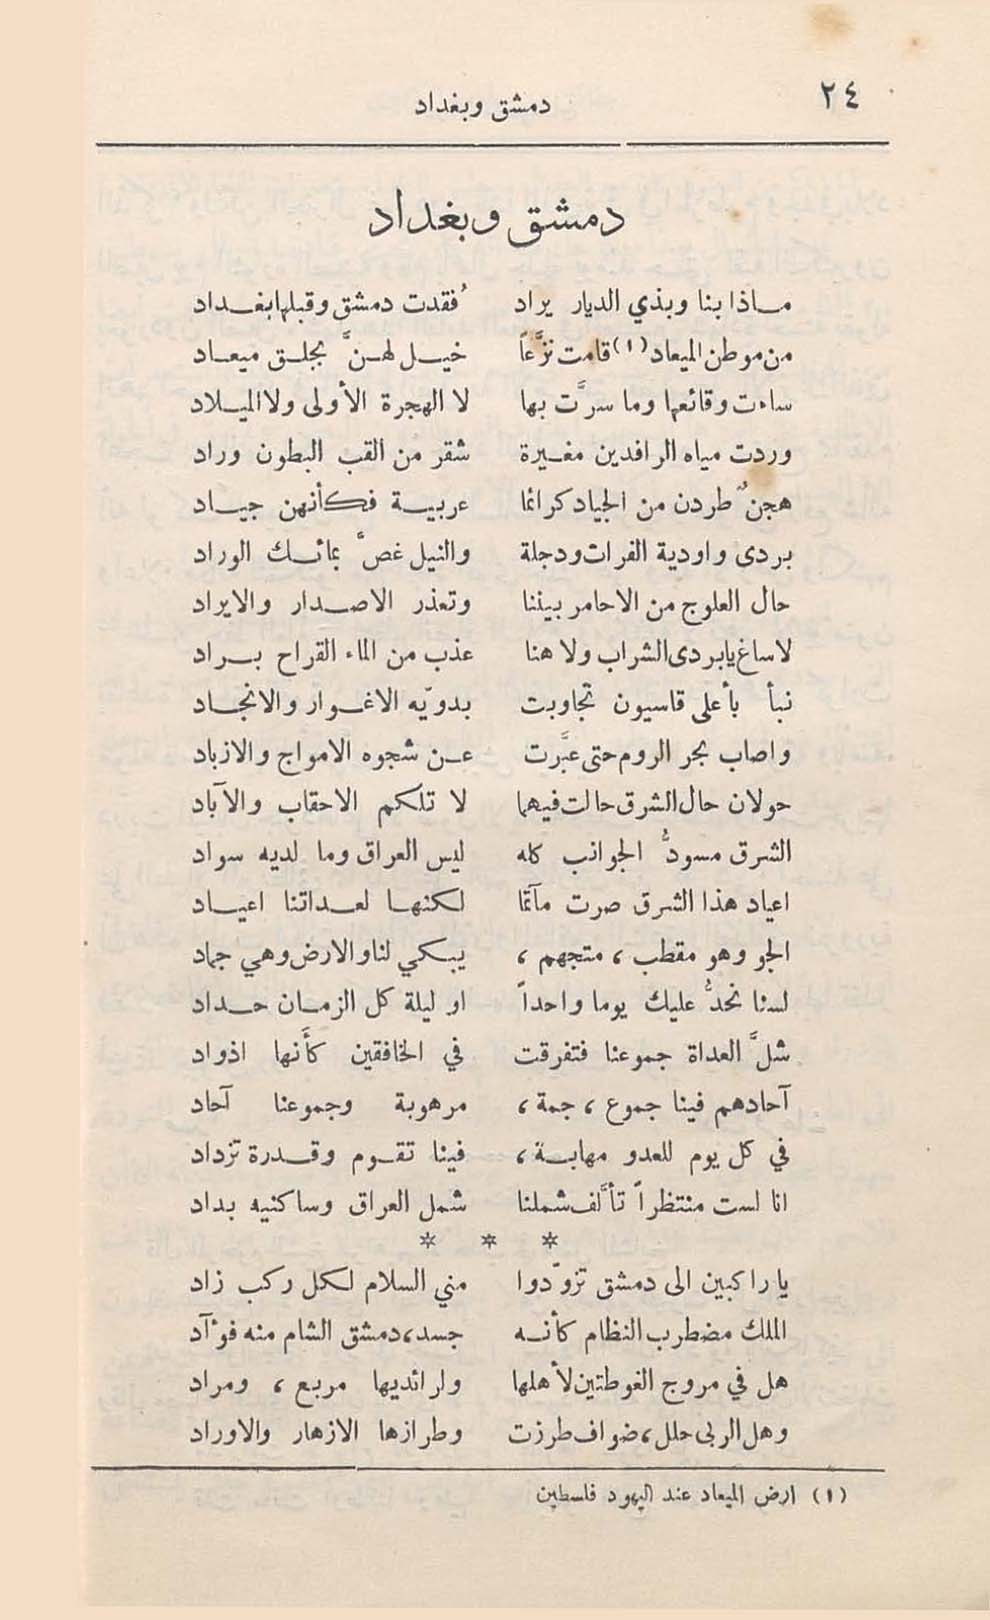 دمشق وبغداد ٢٤
دمشق وبغداد
مـاذا بنا وبذي الديار يراد فُقدت دمشق وقبلها بغـداد
من موطن الميعاد (١) قامت نزَّعاً خيـل لهـنَّ بجلـق ميعـاد
ساءت وقائعها وما سرَّت بها لا الهجرة الأولى ولا الميـلاد
وردت مياه الرافدين مغـيرة شقر من القب البطون وراد
هجنٌ طردن من الجياد كرائما عربيـة فكأنهن جيـاد
بردى واودية الفرات ودجلة والنيل غصَّ بمائـك الوراد
حال العلوج من الاحامر بيننا وتعذر الاصـدار والايراد
لا ساغ يا بردى الشراب ولا هنا عذب من الماء القراح بـراد
نبأ بأعلى قاسيون تجاوبت بدويّه الاغـوار والانجـاد
واصاب بحر الروم حتى عبَّرت عـن شجوه الامواج والازباد
حولان حال الشرق حالت فيهما لا تلكم الاحقاب والآباد
الشرق مسودُّ الجوانب كله ليس العراق وما لديه سواد
اعياد هذا الشرق صرت مآتما لكنهـا لعـداتنا اعيـاد
الجو وهو مقطب ، متجهم ، يبـكي لنا والارض وهي جماد
لسنا نحدُّ عليك يوما واحداً او ليلة كل الزمـان حـداد
شلَّ العداة جموعنا فتفرقت في الخافقين كأنها اذواد
آحادهم فينا جموع ، جمة ، مرهوبة وجموعنا آحاد
في كل يوم للعدو مهابـة ، فينا تقـوم وقـدرة تزداد
انا لست منتظراً تألَّف شملنا شمل العراق وساكنيه بداد
* * *
يا راكبين الى دمشق تزوّدوا مني السلام لكل ركب زاد
الملك مضطرب النظام كأنـه جسد ، دمشق الشام منه فوءآد
هل في مروج الغوطتين لأهلها ولرائديها مربع ، ومراد
وهل الربى حلل ، ضواف طرزت وطرازها الازهار والاوراد
(١) ارض الميعاد عند اليهود فلسطين